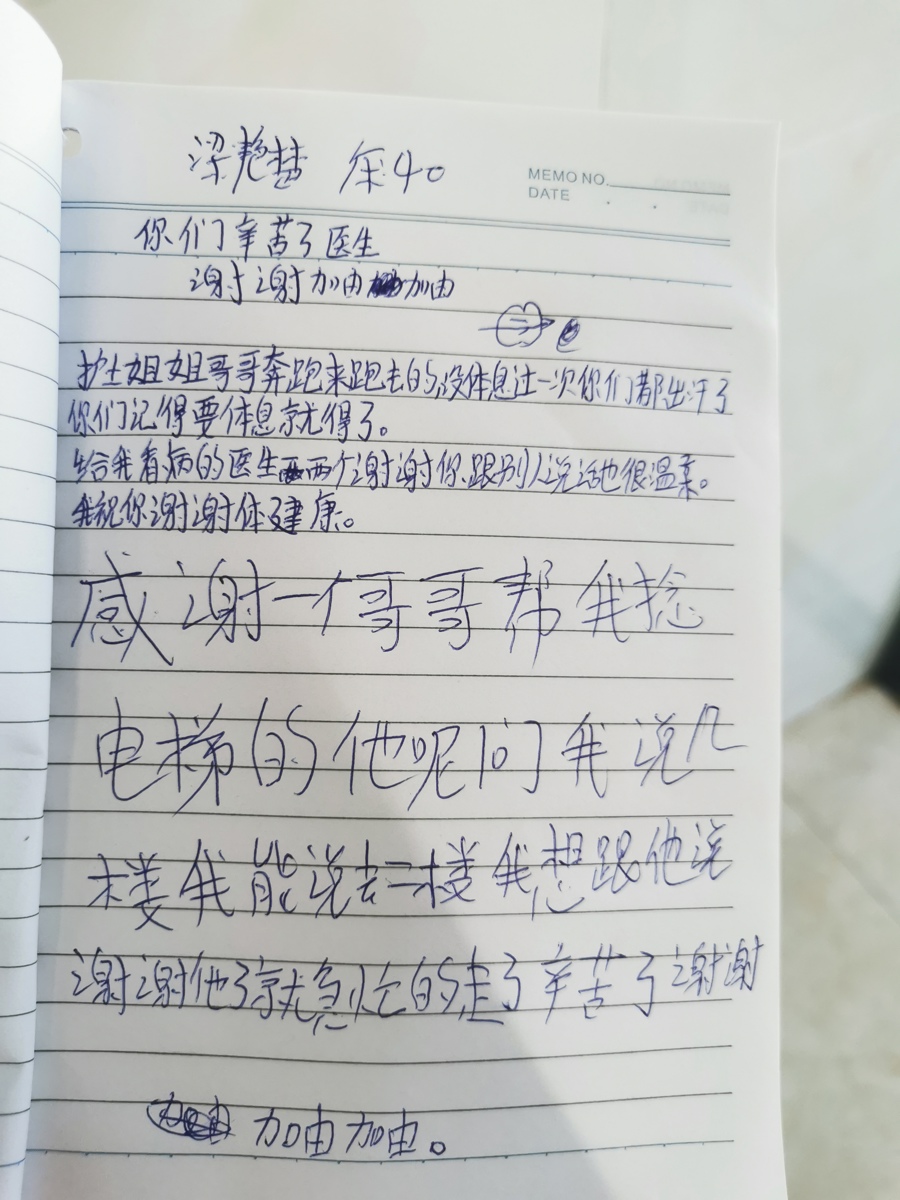 梁艳梦 床40
MEMO NO.
DATE
你们辛苦了医生
谢谢加由加由
护士姐姐哥哥奔跑来跑去的,没体息过一次你们都出汗了
你们记得要体息就得了。
给我看病的医生两个谢谢你跟别人说话也很温柔。
我祝你谢谢体建康。
感谢一个哥哥帮我捻
电梯的他呢问我说几
楼我能说去二楼我想跟他说
谢谢他了就急忙的走了辛苦了谢谢
加由加由。